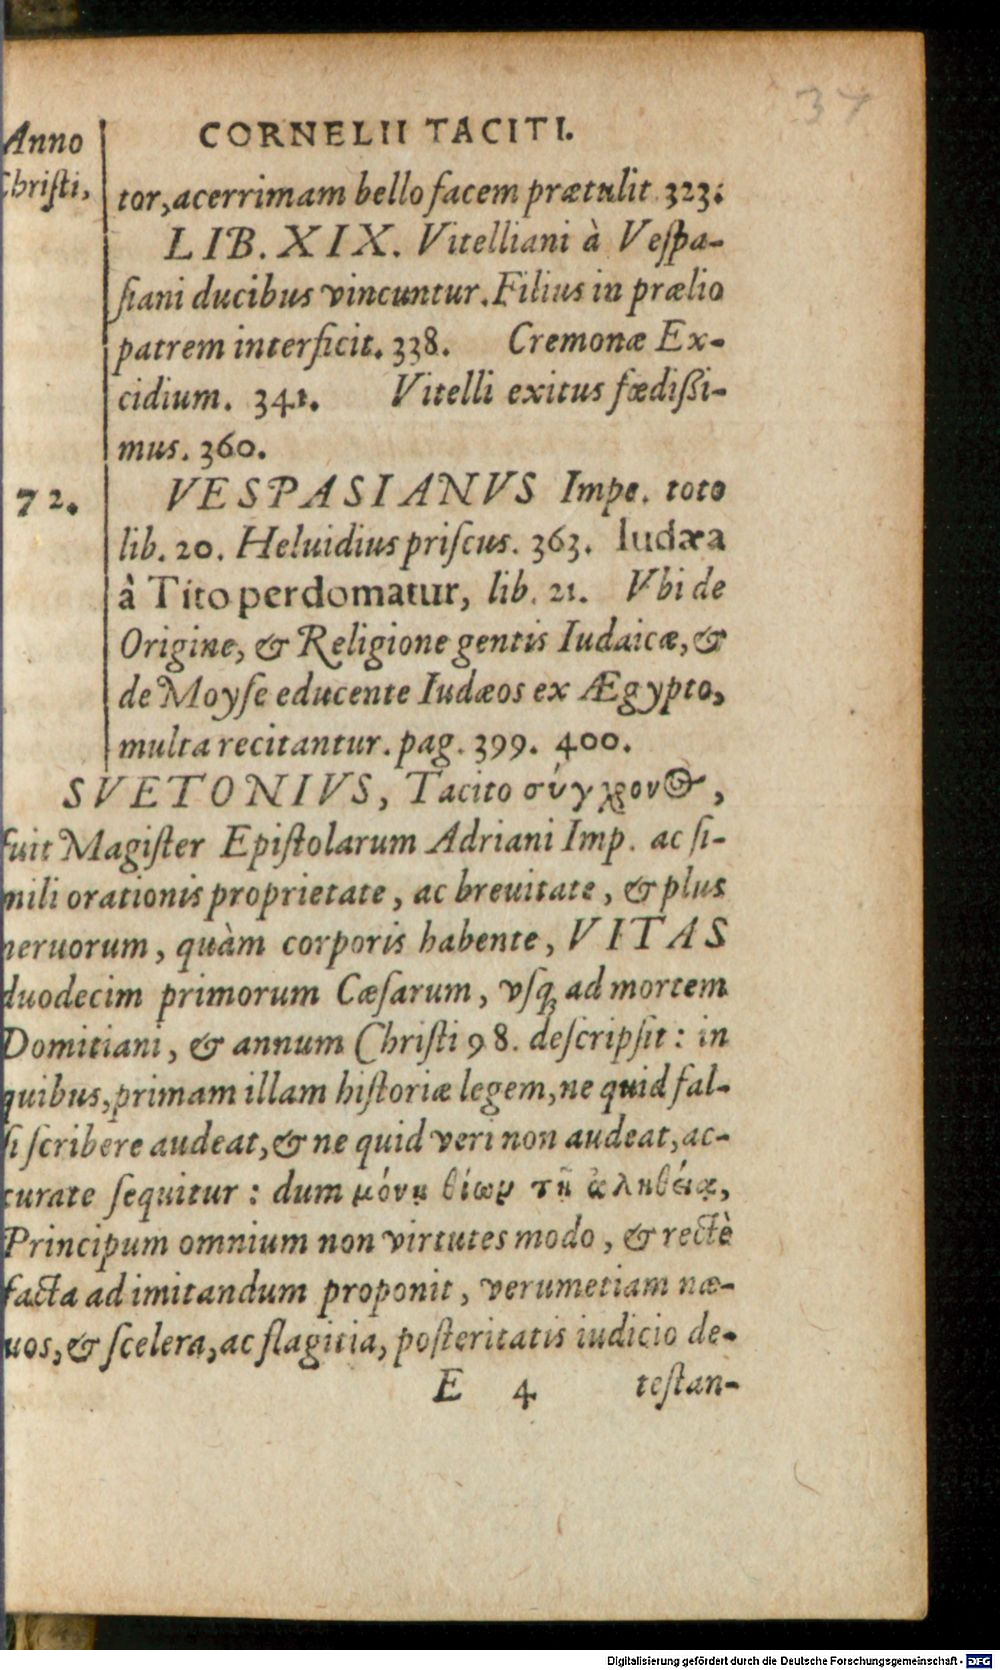 37
CORNELII TACITI.
Anno
Christi,
tor, acerrimam bello facem prætulit 323.
LIB. XIX. Vitelliani à Vespa-
siani ducibus vincuntur. Filius in prælio
patrem interficit. 338. Cremonæ Ex-
cidium. 341. Vitelli exitus fœdißi-
mus. 360.
72. VESPASIANVS Impe. toto
lib. 20. Heluidius priscus. 363. Iudæa
â Tito perdomatur, lib. 21. Vbi de
Origine, & Religione gentis Iudaicæ, &
de Moyse educente Iudæos ex Ægypto,
multa recitantur. pag. 399. 400.
SVETONIVS, Tacito σύγχρονος,
fuit Magister Epistolarum Adriani Imp. ac si-
mili orationis proprietate, ac breuitate, & plus
neruorum, quàm corporis habente, VITAS
duodecim primorum Cæsarum, vsq; ad mortem
Domitiani, & annum Christi 98. descripsit: in
quibus, primam illam historiæ legem, ne quid fal-
si scribere audeat, & ne quid veri non audeat, ac-
curate sequitur: dum μόνῃ θύων τῇ ἀληθείᾳ,
Principum omnium non virtutes modo, & rectè
facta ad imitandum proponit, verumetiam næ-
uos, & scelera, ac flagitia, posteritatis iudicio de-
E 4 testan-
Digitalisierung gefördert durch die Deutsche Forschungsgemeinschaft - DFG